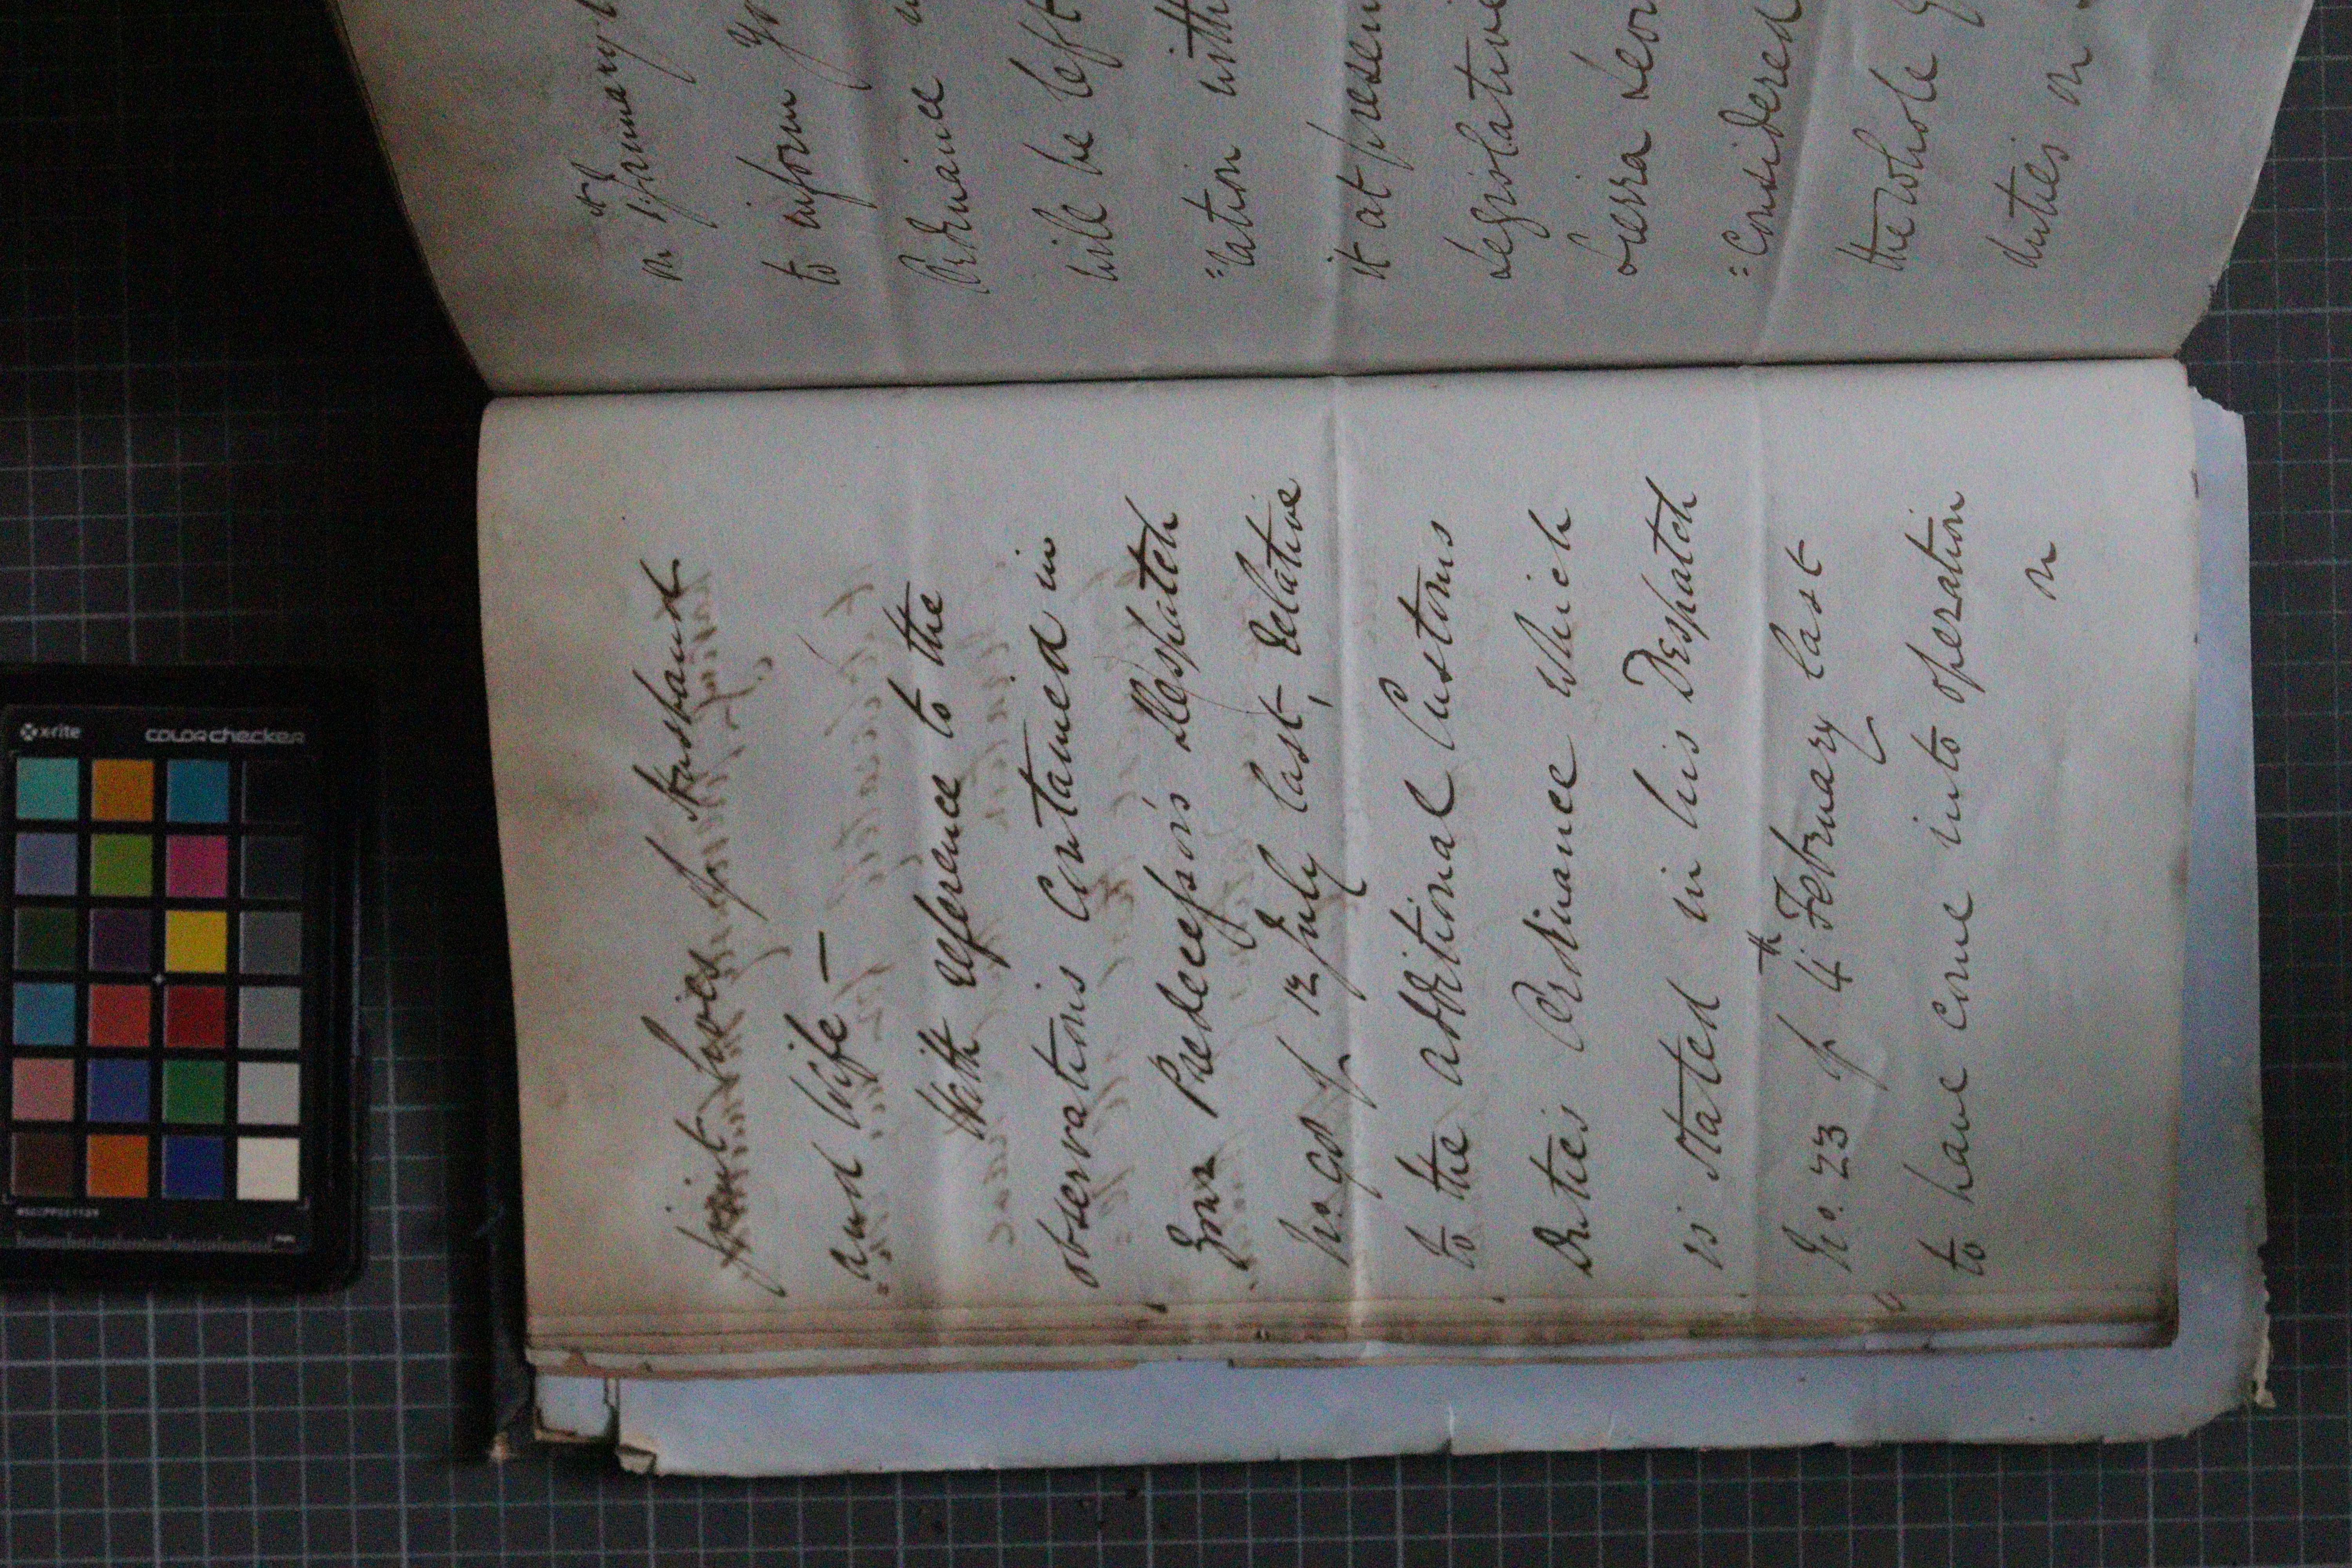 joint lives of Husband
and Wife —
With reference to the
observations contained in
your Predecessor's Despatch
No. 90 of 12 July last, relative
to the additional Customs
Duties Ordinance which
is stated in his Despatch
No. 23 of 4th February last
to have come into operation
on
on 1st January
to inform yo
Ordinance
will be left
=ration with
it at presen
Legislative
Sierra Leon
=Considered
the whole
duties on
x-rite
colorchecker